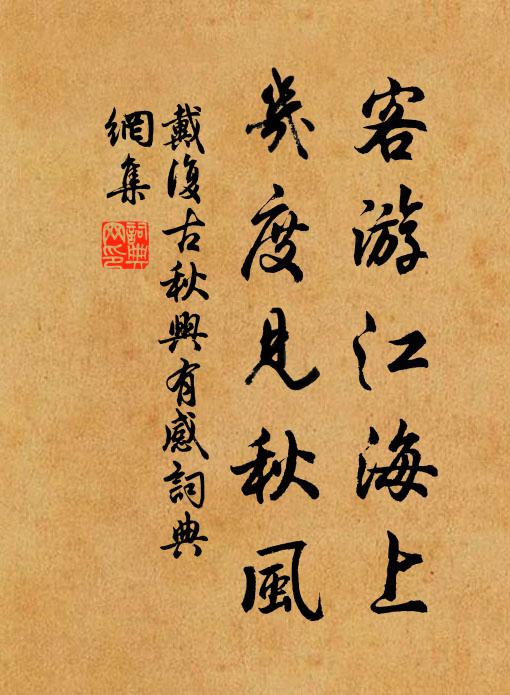 客游江海上
幾度見秋風
戴復古秋興有感詞典
網集
詞典
网印